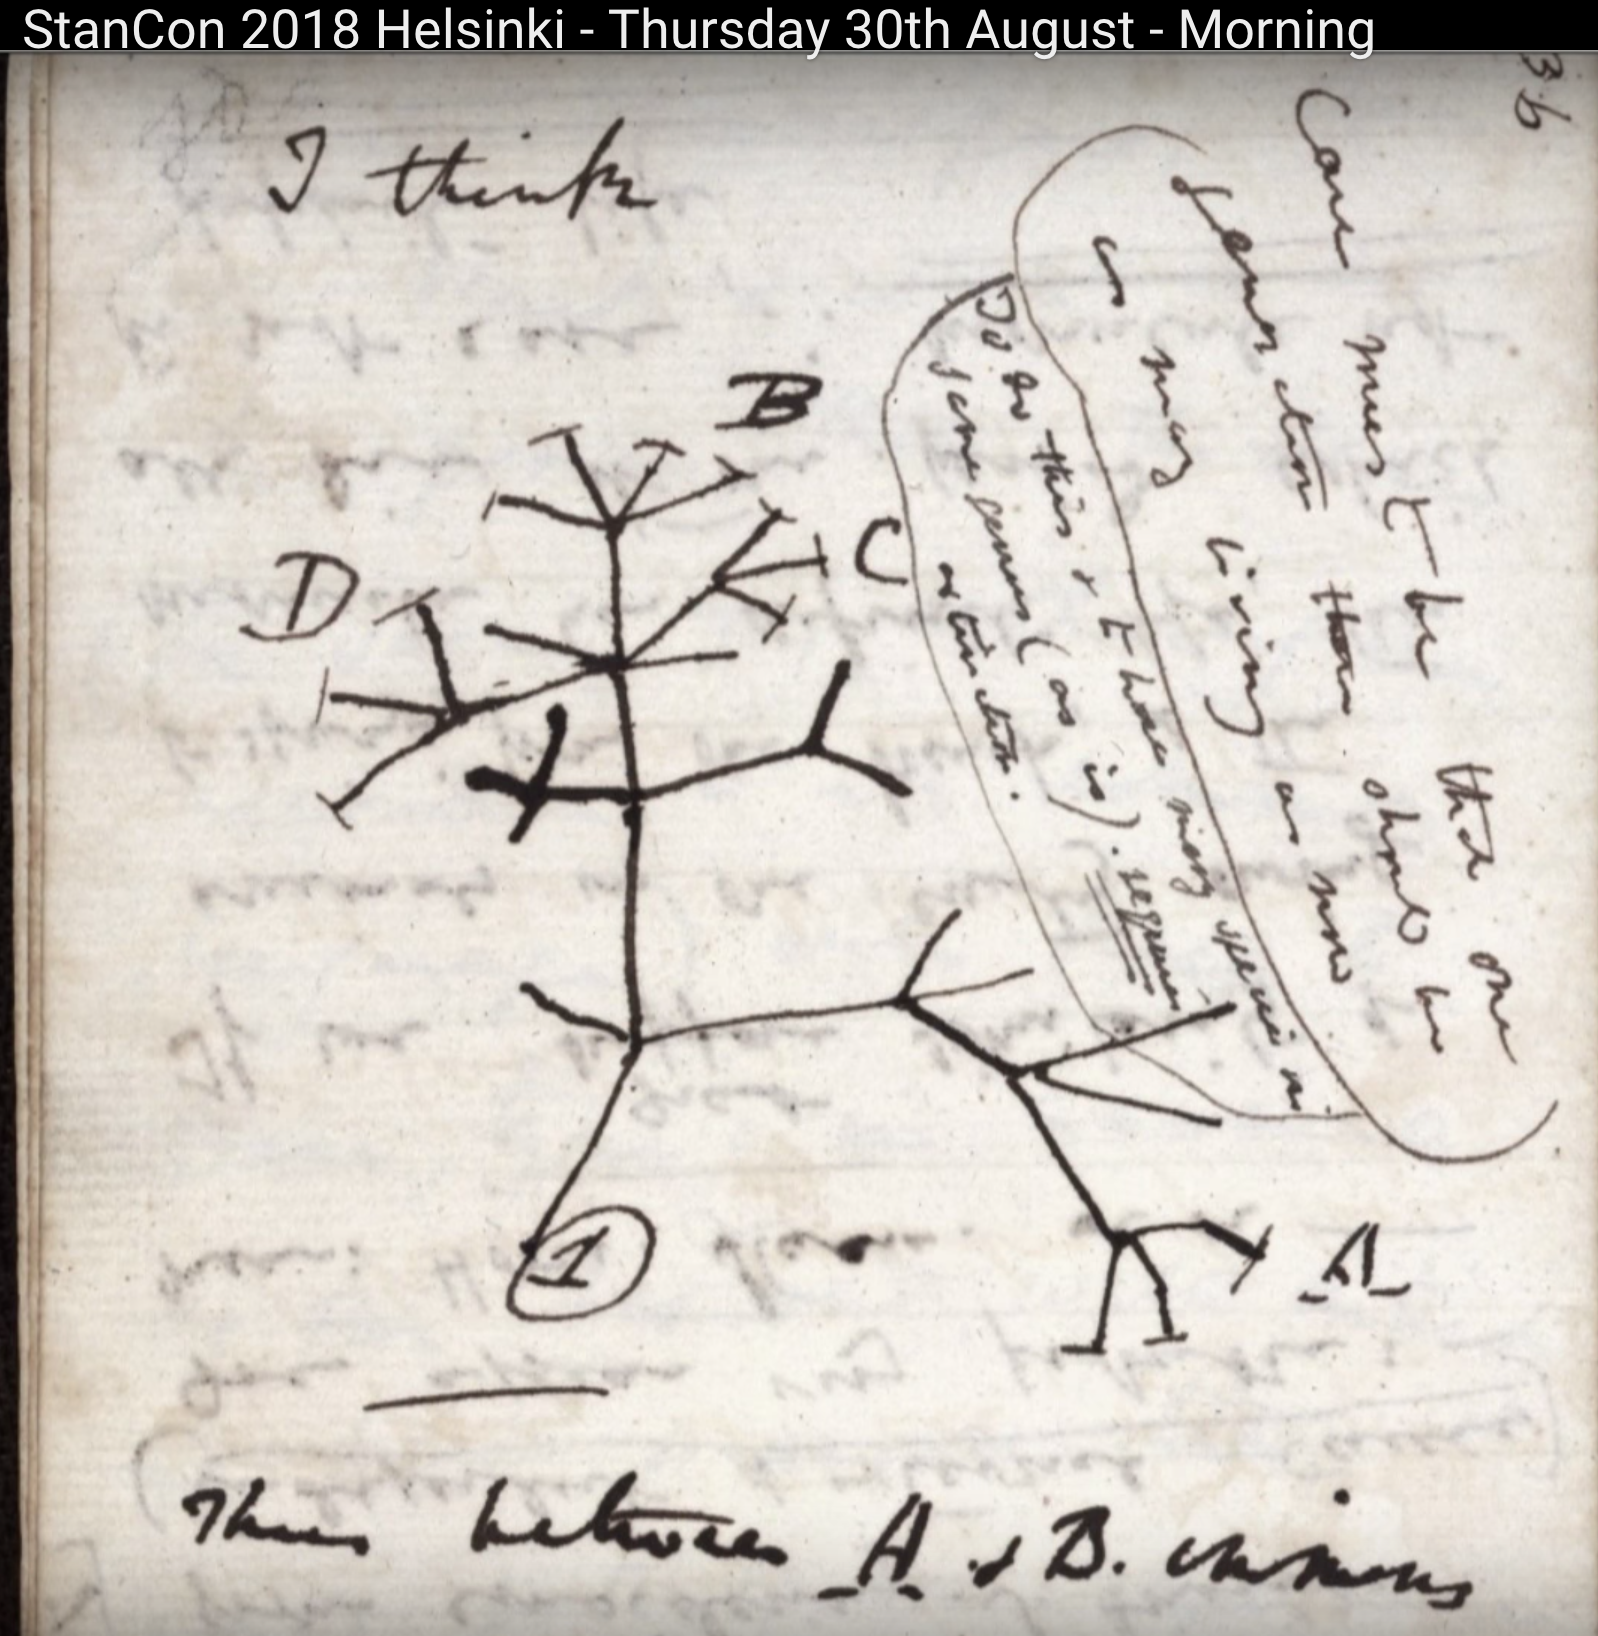 StanCon 2018 Helsinki - Thursday 30th August - Morning
36
I think
Case must be that one
generation then should be
as many living as now
To do this & to have many species in
same genus (as is). requires
extinction.
B
C
D
1
A
Thus between A & B. immens